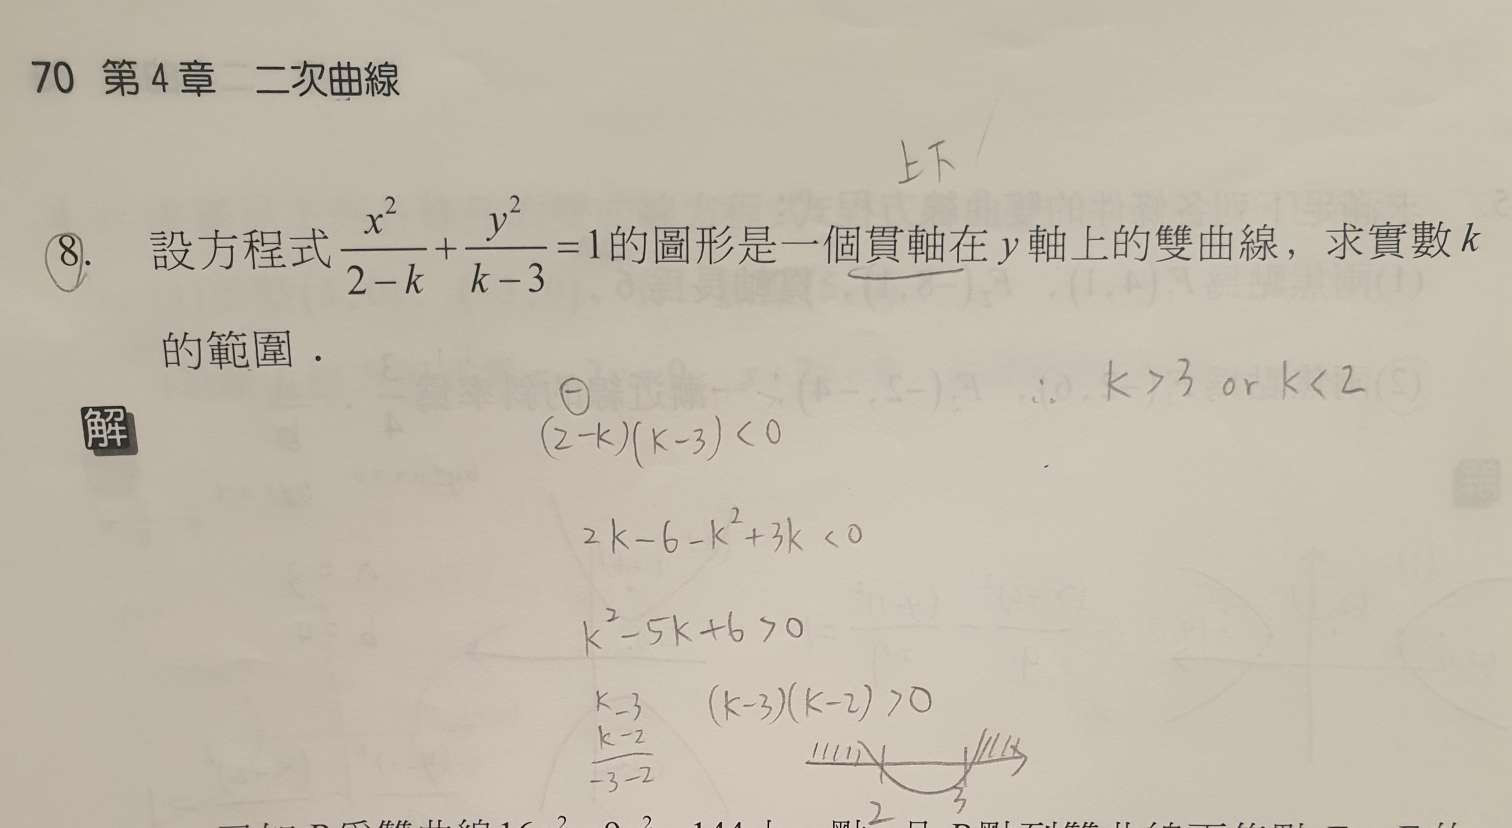 70 第4章 二次曲線
上下
8. 設方程式 x²/(2-k) + y²/(k-3) = 1 的圖形是一個貫軸在 y 軸上的雙曲線，求實數 k
的範圍．
∴ k>3 or k<2
解
⊖
(2-k)(k-3)<0
2k-6-k²+3k<0
k²-5k+6>0
k-3 (k-3)(k-2)>0
k-2
-3-2
2 3